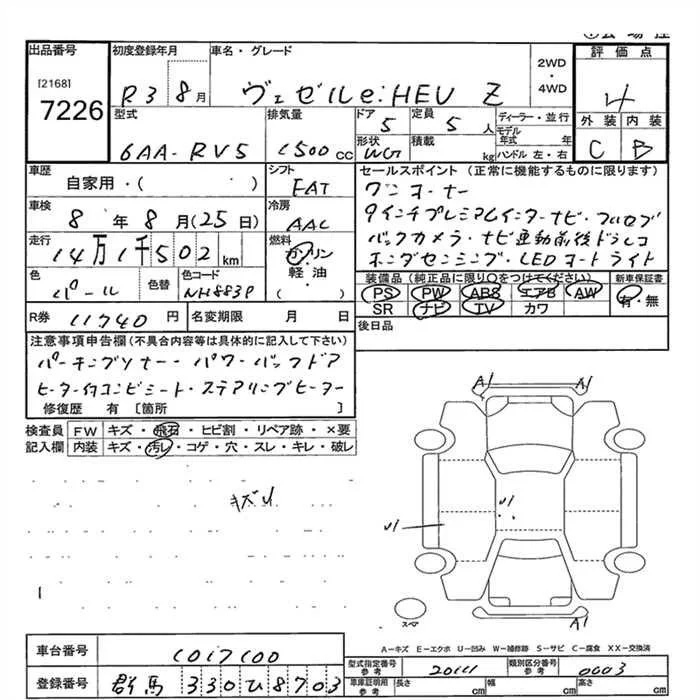 出品番号 初度登録年月 車名・グレード 2WD・4WD 評価点
[2168]
7226 R3 8月 ヴェゼルe:HEV Z 4
型式 排気量 ドア 定員 ディーラー・並行 外装 内装
6AA-RV5 1500cc 5 5人 モデル年式 年 C B
形状 積載 ハンドル 左・右
WG kg
車歴 シフト セールスポイント (正常に機能するものに限ります)
自家用・( ) FAT ワンオーナー
車検 冷房 9インチプレミアムインターナビ・フルセグ
8年8月(25日) AAC バックカメラ・ナビ連動前後ドラレコ
走行 燃料 ホンダセンシング・LEDオートライト
14万1千502km ガソリン
軽油
( )
色 色替 色コード 装備品(純正品に限り○をつけてください) 新車保証書
パール NH883P PS PW ABS エアB AW 有・無
SR ナビ TV カワ
R券 11740円 名変期限 月 日 後日品
注意事項申告欄(不具合内容等は具体的に記入して下さい)
パーキングソナー・パワーバックドア
ヒーター付コンビシート・ステアリングヒーター
修復歴 有 [箇所 ]
検査員 FW キズ・飛石・ヒビ割・リペア跡・×要
記入欄 内装 キズ・汚レ・コゲ・穴・スレ・キレ・破レ
A1 A1
キズU
U1
U1
スペア
A1
A-キズ E-エクボ U-凹み W-補修跡 S-サビ C-腐食 XX-交換済
車台番号 1017100
型式指定番号 参考 20111 類別区分番号 参考 0003
登録番号 群馬 330ひ8703
車庫証明用 参考 長さ cm 幅 cm 高さ cm